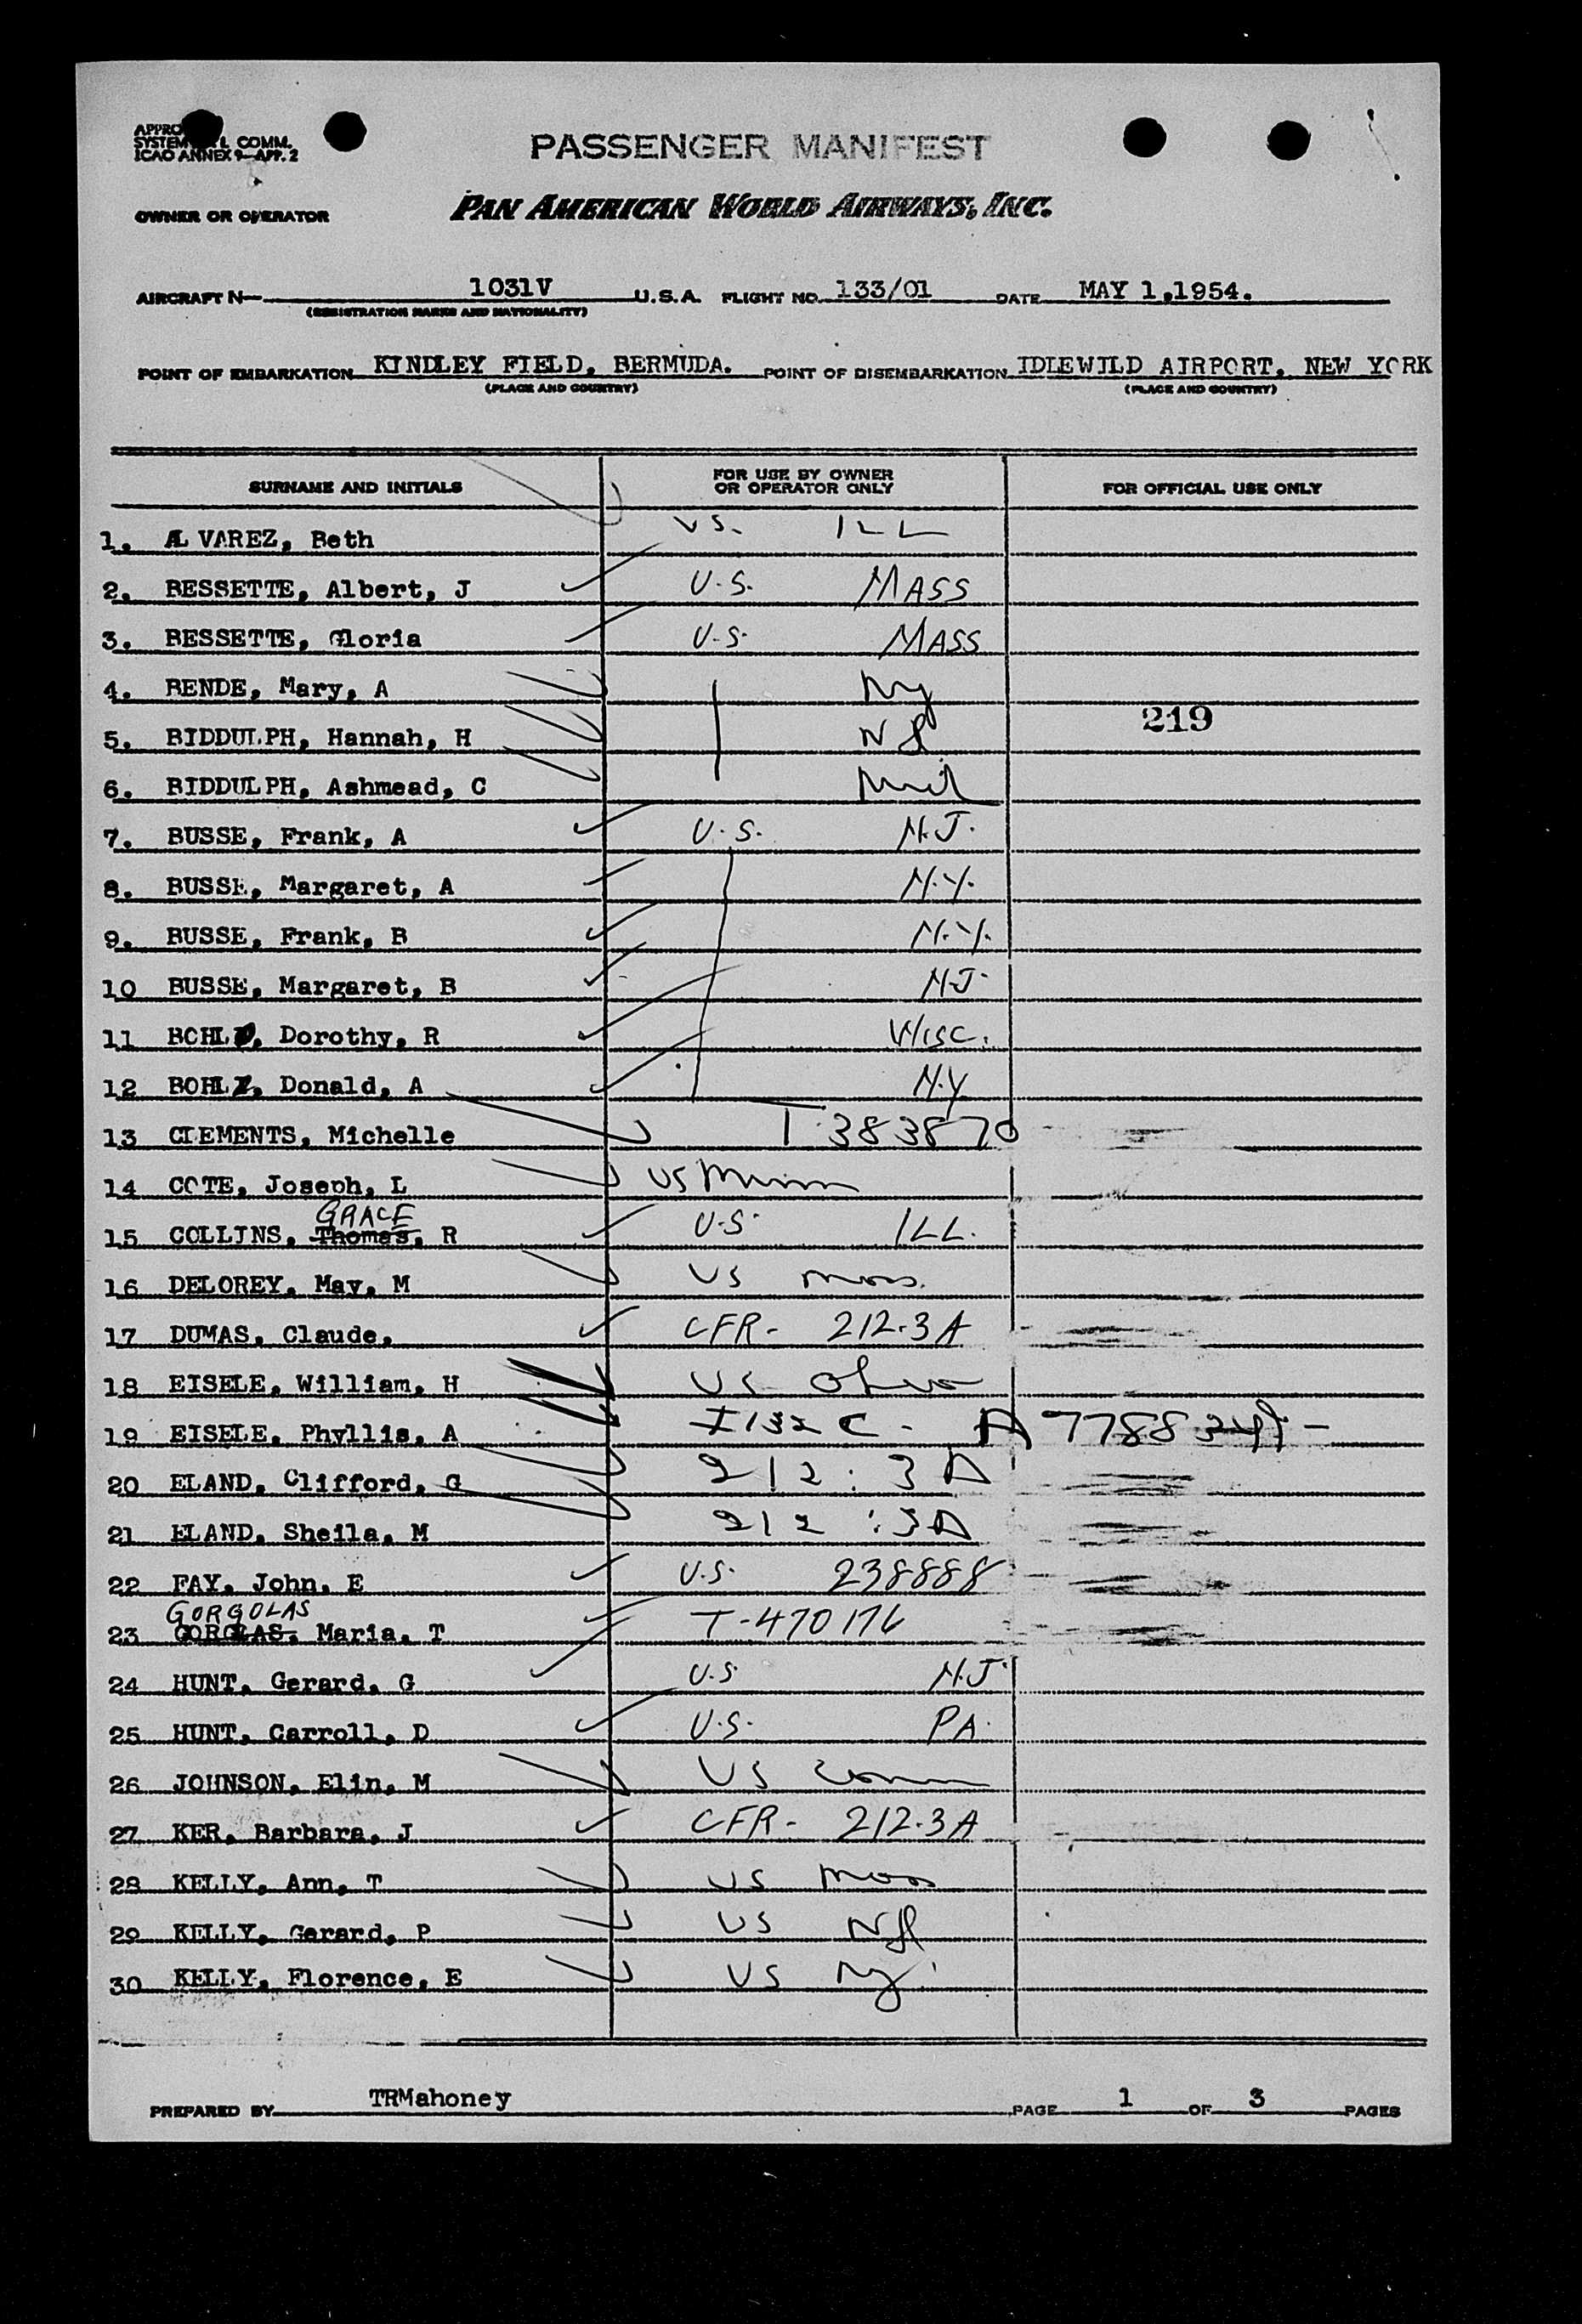 PASSENGER MANIFEST
SYSTEM COMM.
ICAO ANNEX 9—APP. 2
OWNER OR OPERATOR PAN AMERICAN WORLD AIRWAYS, INC.
AIRCRAFT N— 1031V U.S.A. FLIGHT NO. 133/01 DATE MAY 1,1954.
(REGISTRATION MARKS AND NATIONALITY)
POINT OF EMBARKATION KINDLEY FIELD, BERMUDA. POINT OF DISEMBARKATION IDLEWILD AIRPORT, NEW YORK
(PLACE AND COUNTRY) (PLACE AND COUNTRY)
SURNAME AND INITIALS FOR USE BY OWNER OR OPERATOR ONLY FOR OFFICIAL USE ONLY
1. ALVAREZ, Beth US. ILL
2. BESSETTE, Albert, J U.S. MASS
3. BESSETTE, Gloria U.S. MASS
4. BENDE, Mary, A Ny
219
5. BIDDULPH, Hannah, H NJ
6. BIDDULPH, Ashmead, C
7. BUSSE, Frank, A U.S. N.J.
8. BUSSE, Margaret, A N.Y.
9. BUSSE, Frank, B N.Y.
10 BUSSE, Margaret, B N.J.
11 Dorothy, R Wisc.
12 Donald, A N.Y
13 CLEMENTS, Michelle T 383870
14 COTE, Joseph, L US Minn
15 COLLINS, GRACE Thomas, R U.S. ILL.
16 DELOREY, May, M US Mass.
17 DUMAS, Claude, CFR- 212.3A
18 EISELE, William, H US Ohio
19 EISELE, Phyllis, A I 132 C - A
20 ELAND, Clifford, G 212:3A
21 ELAND, Sheila, M 212:3A
22 FAY, John, E U.S. 238888
GORGOLAS
23 Maria, T T-470176
24 HUNT, Gerard, G U.S. N.J.
25 HUNT, Carroll, D U.S. PA.
26 JOHNSON, Elin, M US Conn
27 KER, Barbara, J CFR- 212.3A
28 KELLY, Ann, T US Mass
29 KELLY, Gerard, P US NJ
30 KELLY, Florence, E US Ny
PREPARED BY TRMahoney PAGE 1 OF 3 PAGES